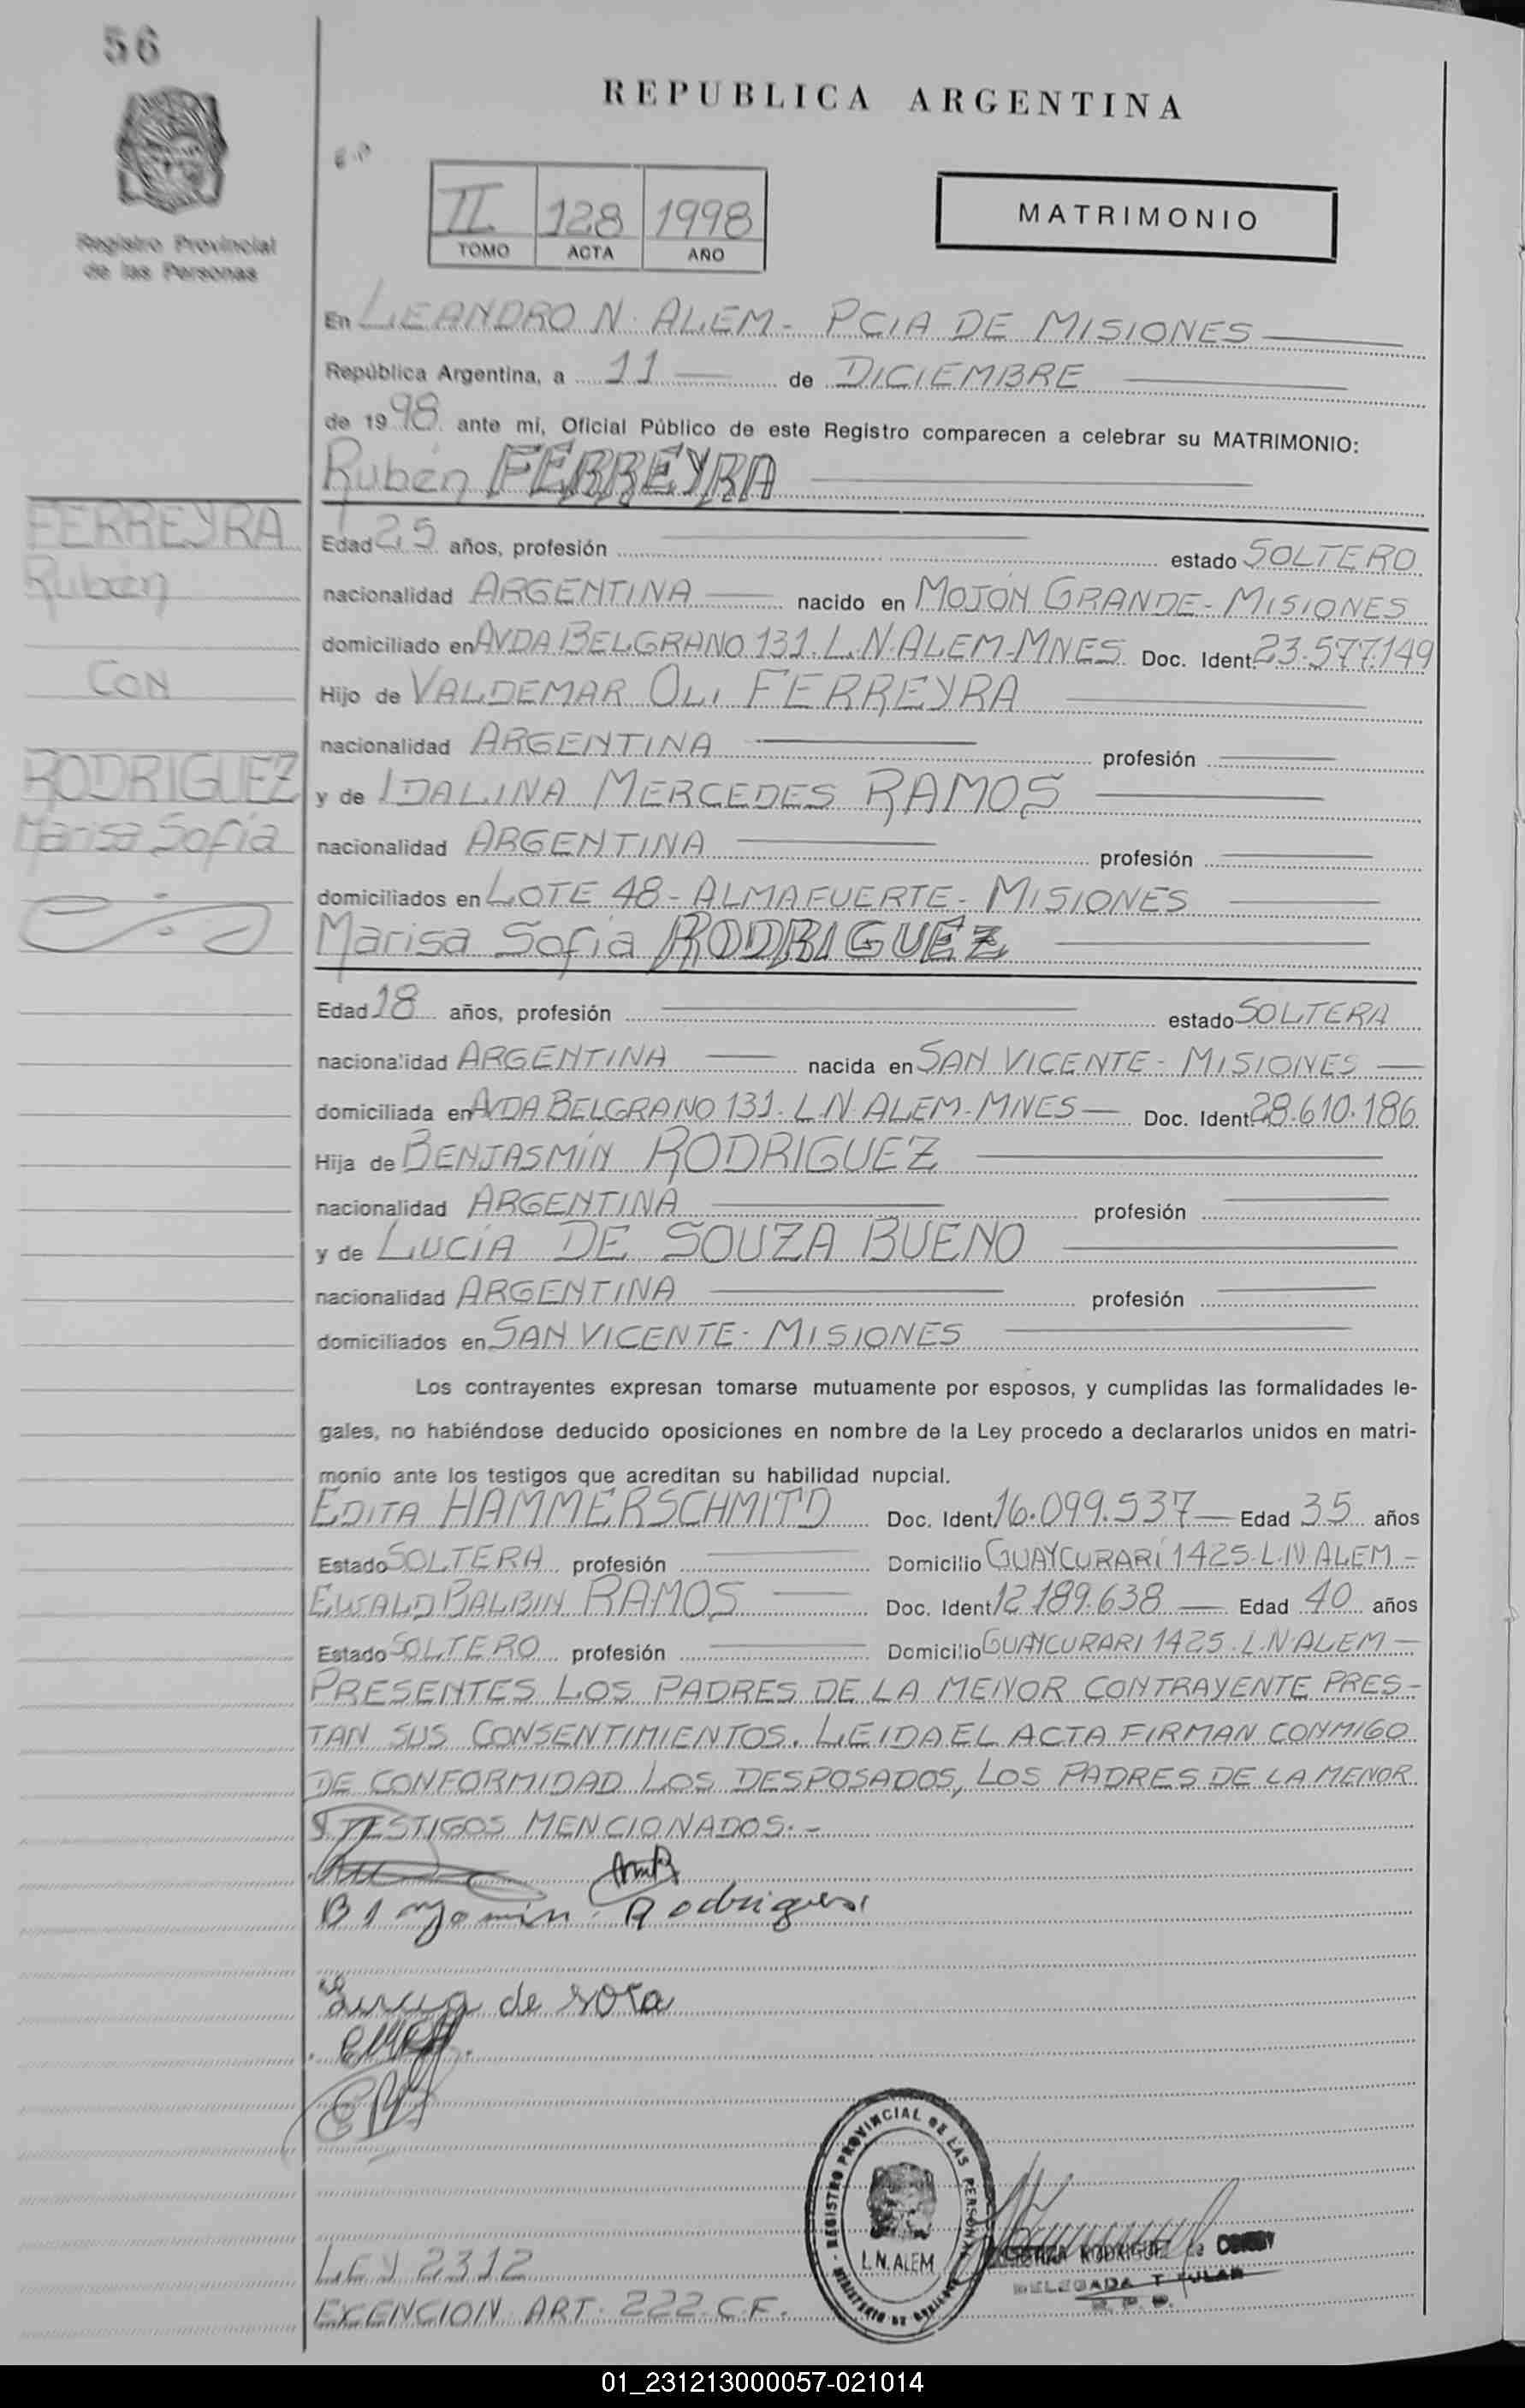 56
REPUBLICA ARGENTINA
Registro Provincial
de las Personas
II 128 1998
TOMO ACTA AÑO
MATRIMONIO
En LEANDRO N. ALEM - PCIA DE MISIONES
República Argentina, a 11 de DICIEMBRE
de 1998 ante mi, Oficial Público de este Registro comparecen a celebrar su MATRIMONIO:
Rubén FERREYRA
FERREYRA
Rubén
CON
RODRIGUEZ
Marisa Sofía
Edad 25 años, profesión estado SOLTERO
nacionalidad ARGENTINA nacido en MOJÓN GRANDE - MISIONES
domiciliado en AVDA BELGRANO 131. L.N.ALEM-MNES Doc. Ident. 23.577.149
Hijo de VALDEMAR OLI FERREYRA
nacionalidad ARGENTINA profesión
y de IDALINA MERCEDES RAMOS
nacionalidad ARGENTINA profesión
domiciliados en LOTE 48 - ALMAFUERTE - MISIONES
Marisa Sofía RODRIGUEZ
Edad 18 años, profesión estado SOLTERA
nacionalidad ARGENTINA nacida en SAN VICENTE - MISIONES
domiciliada en AVDA BELGRANO 131. L.N. ALEM-MNES Doc. Ident. 28.610.186
Hija de BENJASMÍN RODRIGUEZ
nacionalidad ARGENTINA profesión
y de LUCÍA DE SOUZA BUENO
nacionalidad ARGENTINA profesión
domiciliados en SAN VICENTE - MISIONES
Los contrayentes expresan tomarse mutuamente por esposos, y cumplidas las formalidades le-
gales, no habiéndose deducido oposiciones en nombre de la Ley procedo a declararlos unidos en matri-
monio ante los testigos que acreditan su habilidad nupcial.
EDITA HAMMERSCHMITD Doc. Ident. 16.099.537 Edad 35 años
Estado SOLTERA profesión Domicilio GUAYCURARÍ 1425-L.N ALEM -
EWALD BALBIN RAMOS Doc. Ident. 12.189.638 Edad 40 años
Estado SOLTERO profesión Domicilio GUAYCURARI 1425. L.N.ALEM -
PRESENTES LOS PADRES DE LA MENOR CONTRAYENTE PRES-
TAN SUS CONSENTIMIENTOS. LEIDA EL ACTA FIRMAN CONMIGO
DE CONFORMIDAD LOS DESPOSADOS, LOS PADRES DE LA MENOR
Y TESTIGOS MENCIONADOS.-
Rodrigues
de
REGISTRO PROVINCIAL DE LAS PERSONAS
L.N.ALEM
MINISTERIO DE GOBIERNO
RODRIGUEZ de
DELEGADA TITULAR
R. P. P.
LEY 2312
EXENCION ART. 222.C.F.
01_231213000057-021014